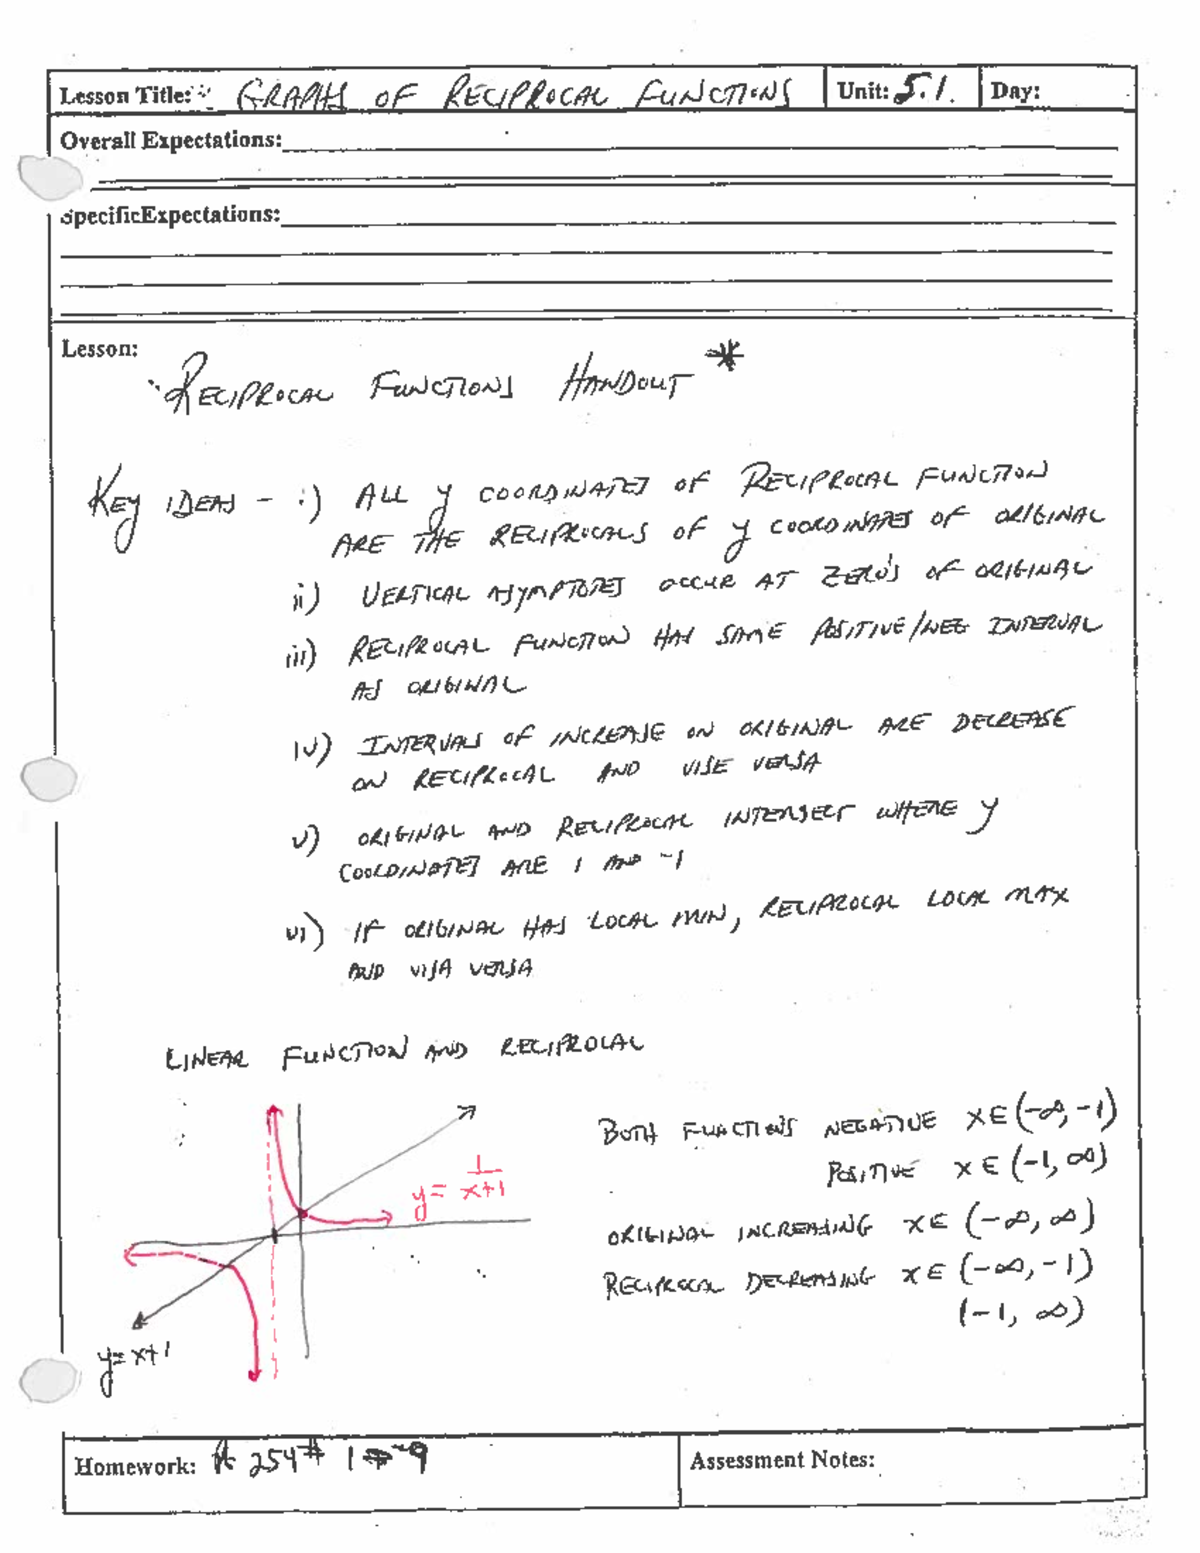 Lesson Title: GRAPHS OF RECIPROCAL FUNCTIONS Unit: 5.1. Day:
Overall Expectations:
SpecificExpectations:
Lesson:
RECIPROCAL FUNCTIONS HANDOUT *
KEY IDEAS - i) ALL y COORDINATES OF RECIPROCAL FUNCTION
ARE THE RECIPROCALS OF y COORDINATES OF ORIGINAL
ii) VERTICAL ASYMPTOTES OCCUR AT ZERO'S OF ORIGINAL
iii) RECIPROCAL FUNCTION HAS SAME POSITIVE/NEG INTERVAL
AS ORIGINAL
iv) INTERVALS OF INCREASE ON ORIGINAL ARE DECREASE
ON RECIPROCAL AND VISE VERSA
v) ORIGINAL AND RECIPROCAL INTERSECT WHERE y
COORDINATES ARE 1 AND -1
vi) IF ORIGINAL HAS LOCAL MIN, RECIPROCAL LOCAL MAX
AND VISA VERSA
LINEAR FUNCTION AND RECIPROCAL
BOTH FUNCTIONS NEGATIVE X∈(-∞,-1)
POSITIVE X∈(-1,∞)
y= 1/x+1
ORIGINAL INCREASING X∈(-∞,∞)
RECIPROCAL DECREASING X∈(-∞,-1)
(-1, ∞)
y=x+1
Homework: 254# 1 -9
Assessment Notes: